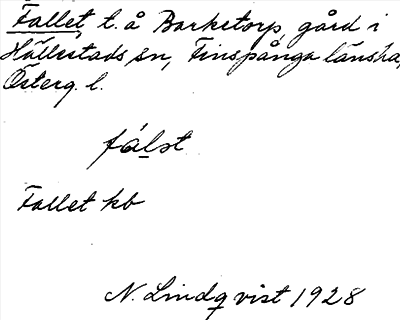 Fallet, t. å Barketorp, gård i
Hällestads sn, Finspånga länsha,
Österg. l.
fálst
Fallet kb
N. Lindqvist 1928